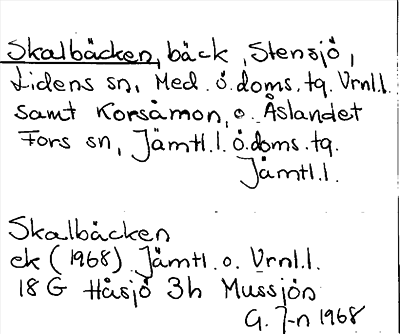 Skalbäcken, bäck, Stensjö,
Lidens sn, Med. ö. doms. tq. Vrnl.l.
samt Korsåmon, o. Åslandet
Fors sn, Jämtl.l. ö. doms. tq.
Jämtl.l.
Skalbäcken
ek (1968) Jämtl. o. Vrnl.l.
18 G Håsjö 3h Mussjön
G. J-n 1968